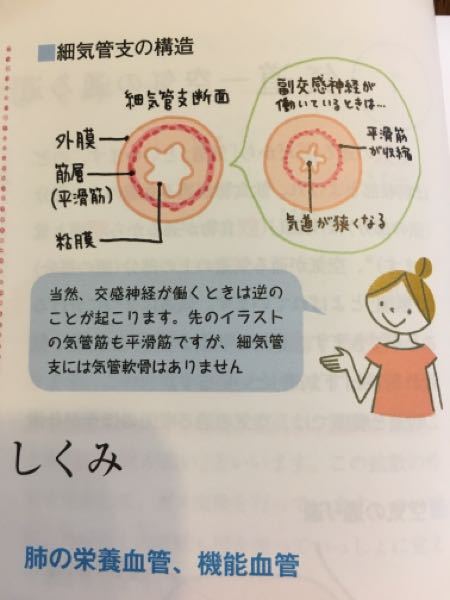 ■細気管支の構造
細気管支断面
外膜
筋層
(平滑筋)
粘膜
副交感神経が
働いているときは…
平滑筋
が収縮
気道が狭くなる
当然、交感神経が働くときは逆の
ことが起こります。先のイラスト
の気管筋も平滑筋ですが、細気管
支には気管軟骨はありません
しくみ
肺の栄養血管、機能血管